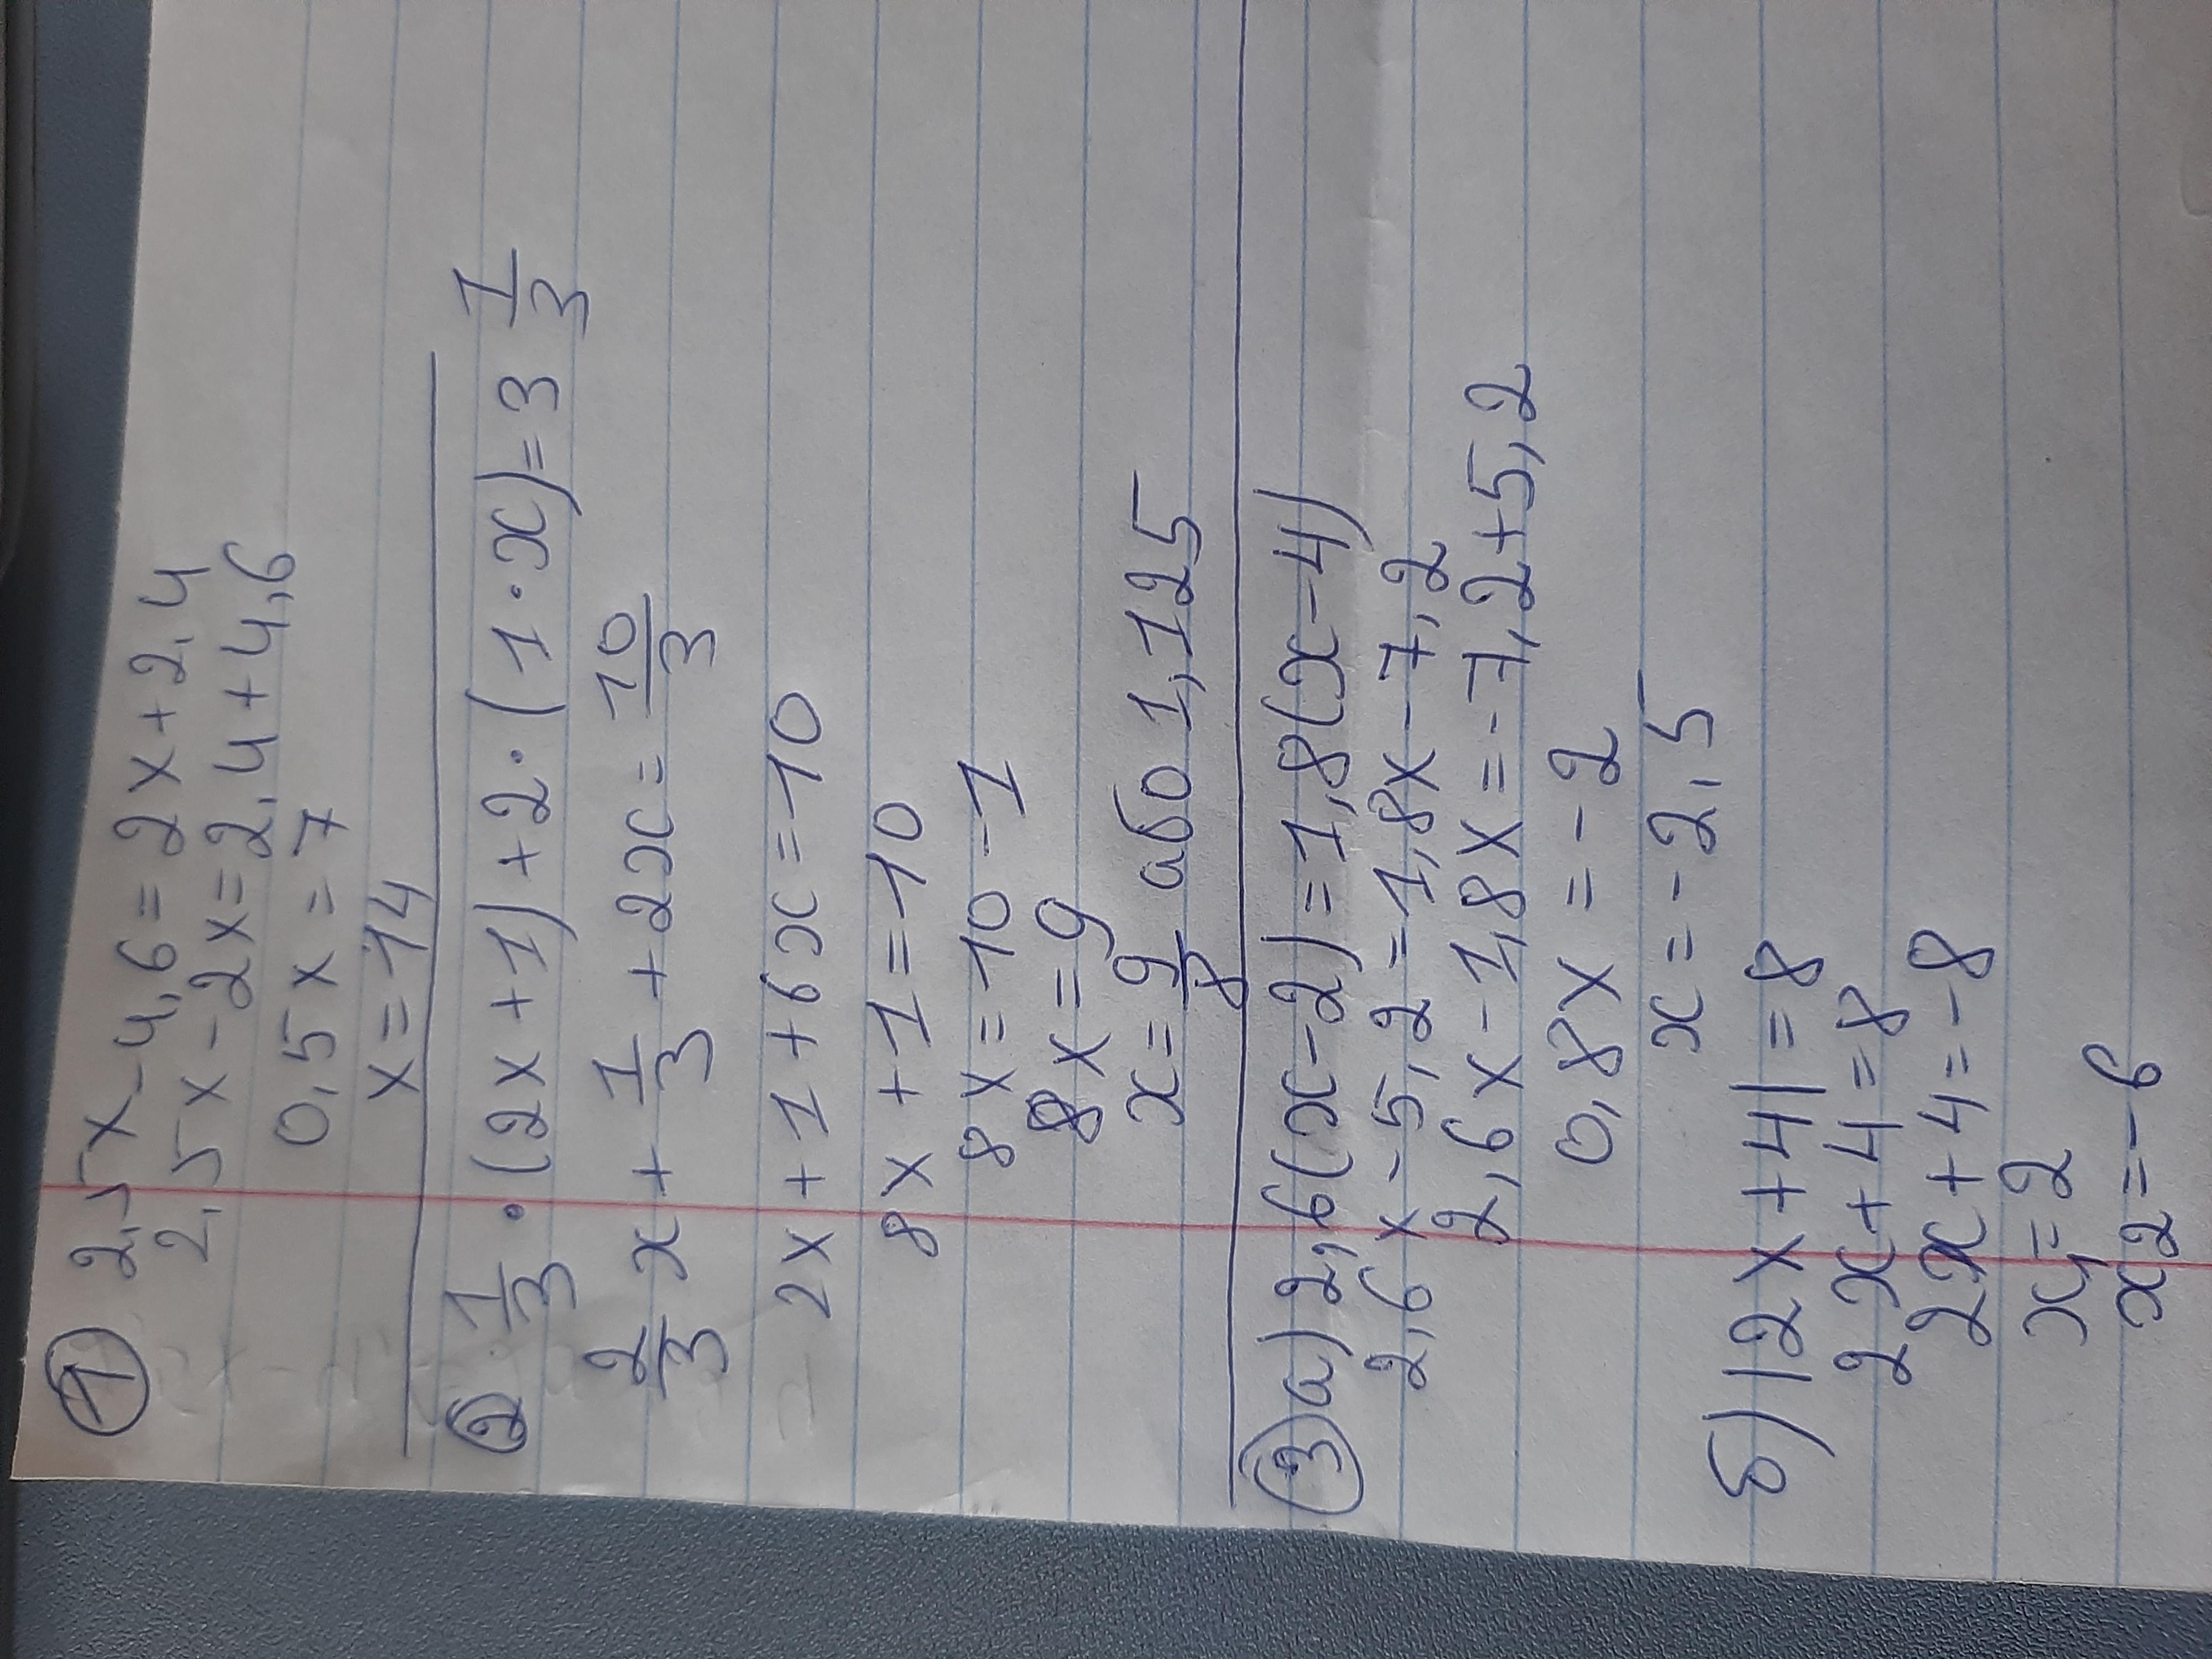 1 2,5x-4,6=2x+2,4
2,5x-2x=2,4+4,6
0,5x=7
x=14
2 1/3·(2x+1)+2·(1·x)=3 1/3
2/3x+1/3+2x=10/3
2x+1+6x=10
8x+1=10
8x=10-1
8x=9
x=9/8 або 1,125
3 а) 2,6(x-2)=1,8(x-4)
2,6x-5,2=1,8x-7,2
2,6x-1,8x=-7,2+5,2
0,8x=-2
x=-2,5
б) |2x+4|=8
2x+4=8
2x+4=-8
x1=2
x2=-6